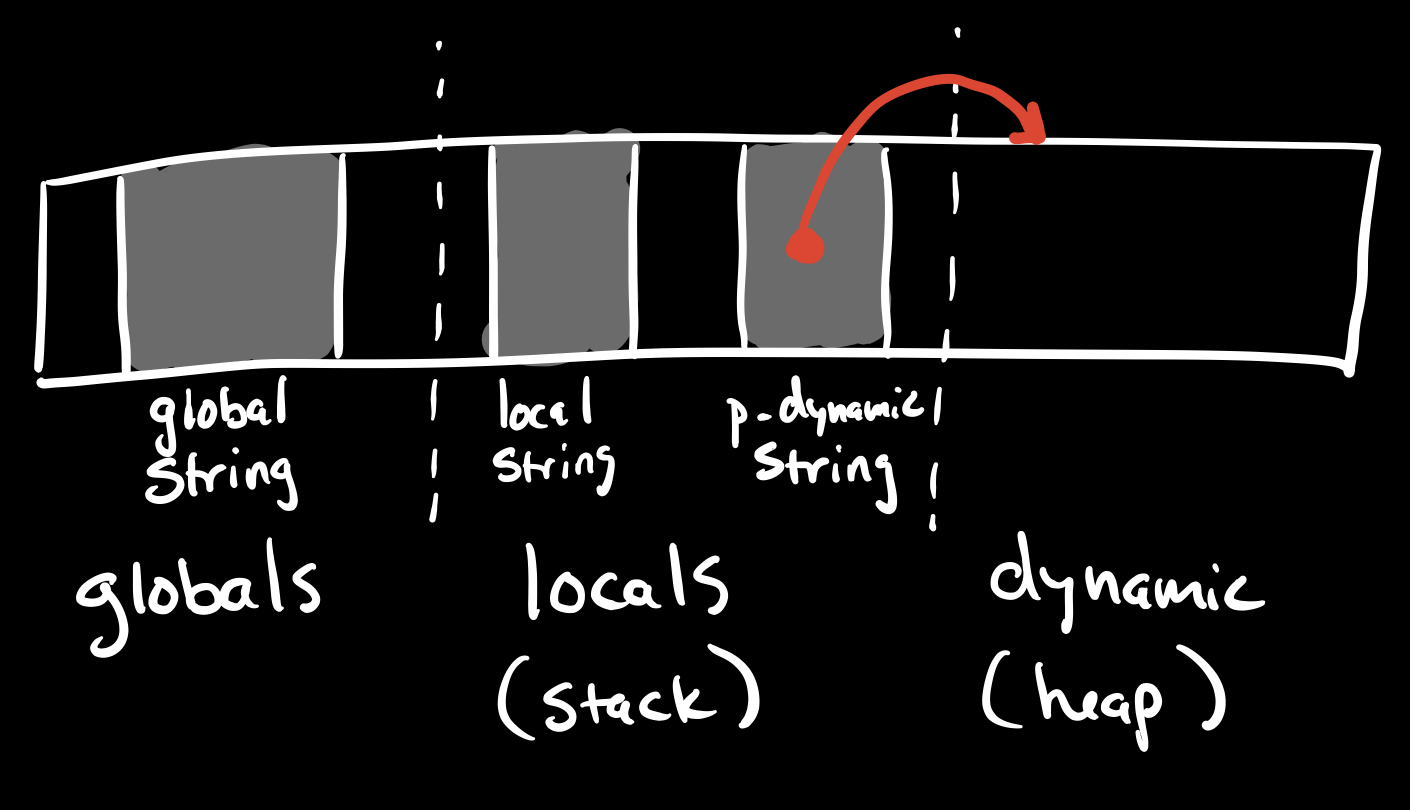 global
String
local
String
p-dynamic
String
globals
locals
(stack)
dynamic
(heap)